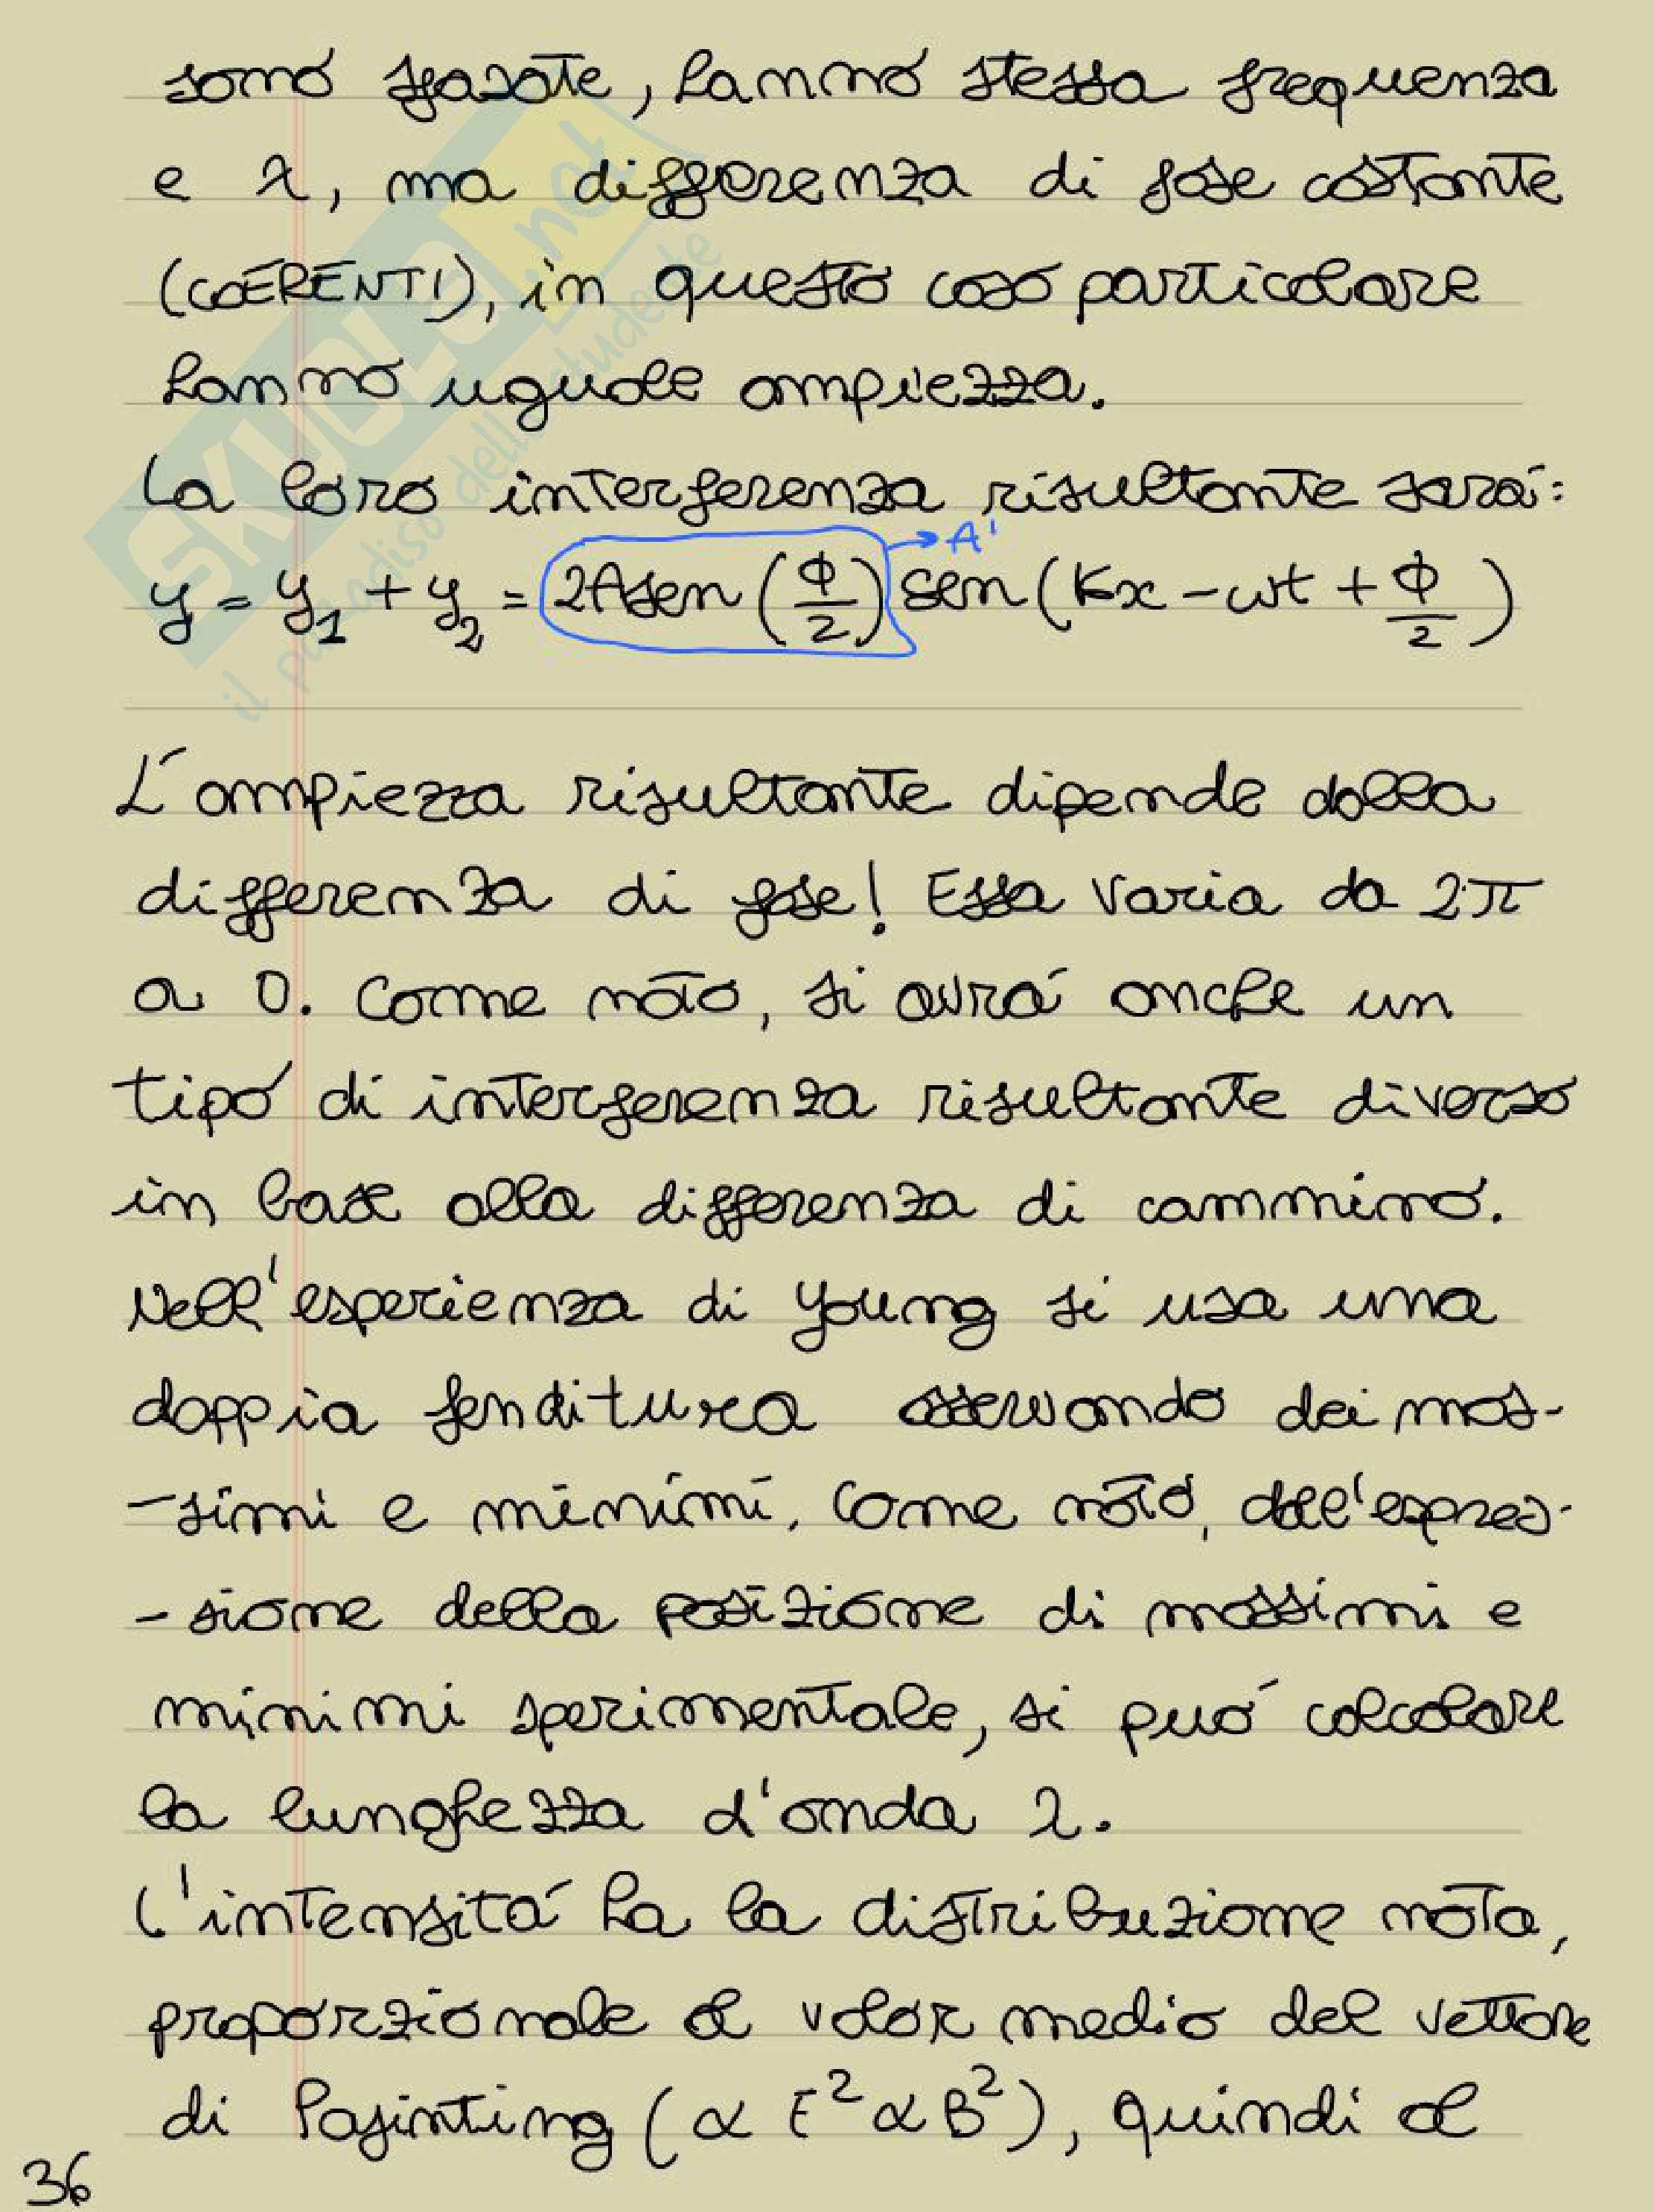 sono sfasate, hanno stessa frequenza
e λ, ma differenza di fase costante
(COERENTI), in questo caso particolare
hanno uguale ampiezza.
La loro interferenza risultante sará:
→ A'
y = y₁ + y₂ = 2Asen (Φ/2) sen (Kx - ωt + Φ/2)
L'ampiezza risultante dipende dalla
differenza di fase! Essa varia da 2π
a 0. Come noto, si avrá anche un
tipo di interferenza risultante diverso
in base alla differenza di cammino.
Nell'esperienza di Young si usa una
doppia fenditura osservando dei mas-
-simi e minimi. Come noto, dall'espres-
-sione della posizione di massimi e
minimi sperimentale, si puó calcolare
la lunghezza d'onda λ.
L'intensitá ha la distribuzione nota,
proporzionale al valor medio del vettore
di Posinting (∝ E² ∝ B²), quindi al
36
SKUOLA.net
il paradiso dello studente